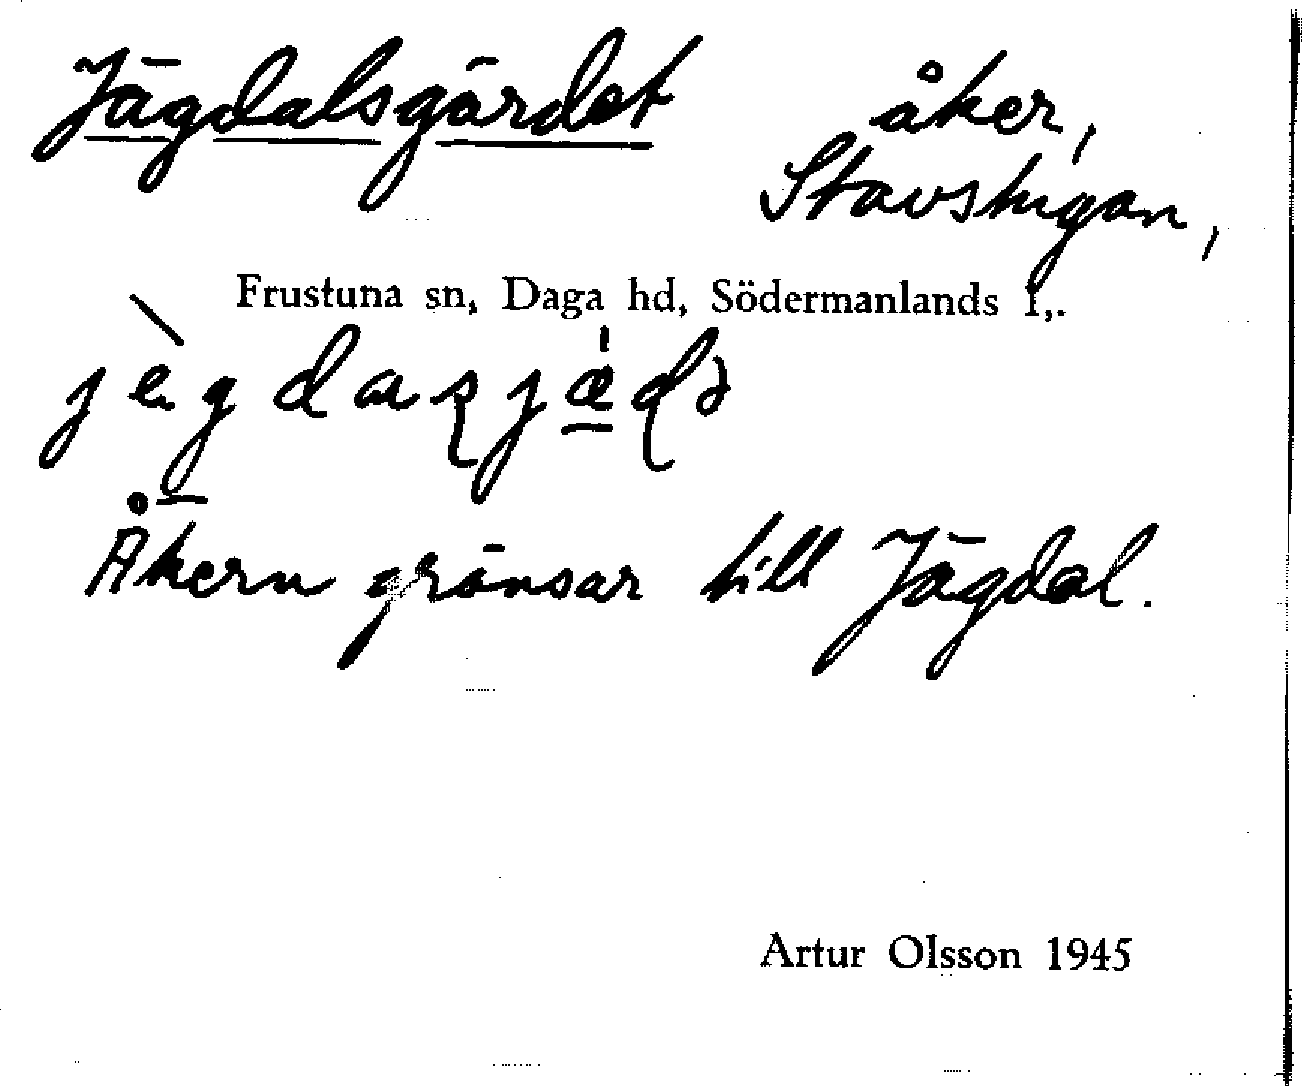 Jägdalsgärdet åker,
Stavstugan,
Frustuna sn, Daga hd, Södermanlands l,.
Åkern gränsar till Jägdal.
Artur Olsson 1945